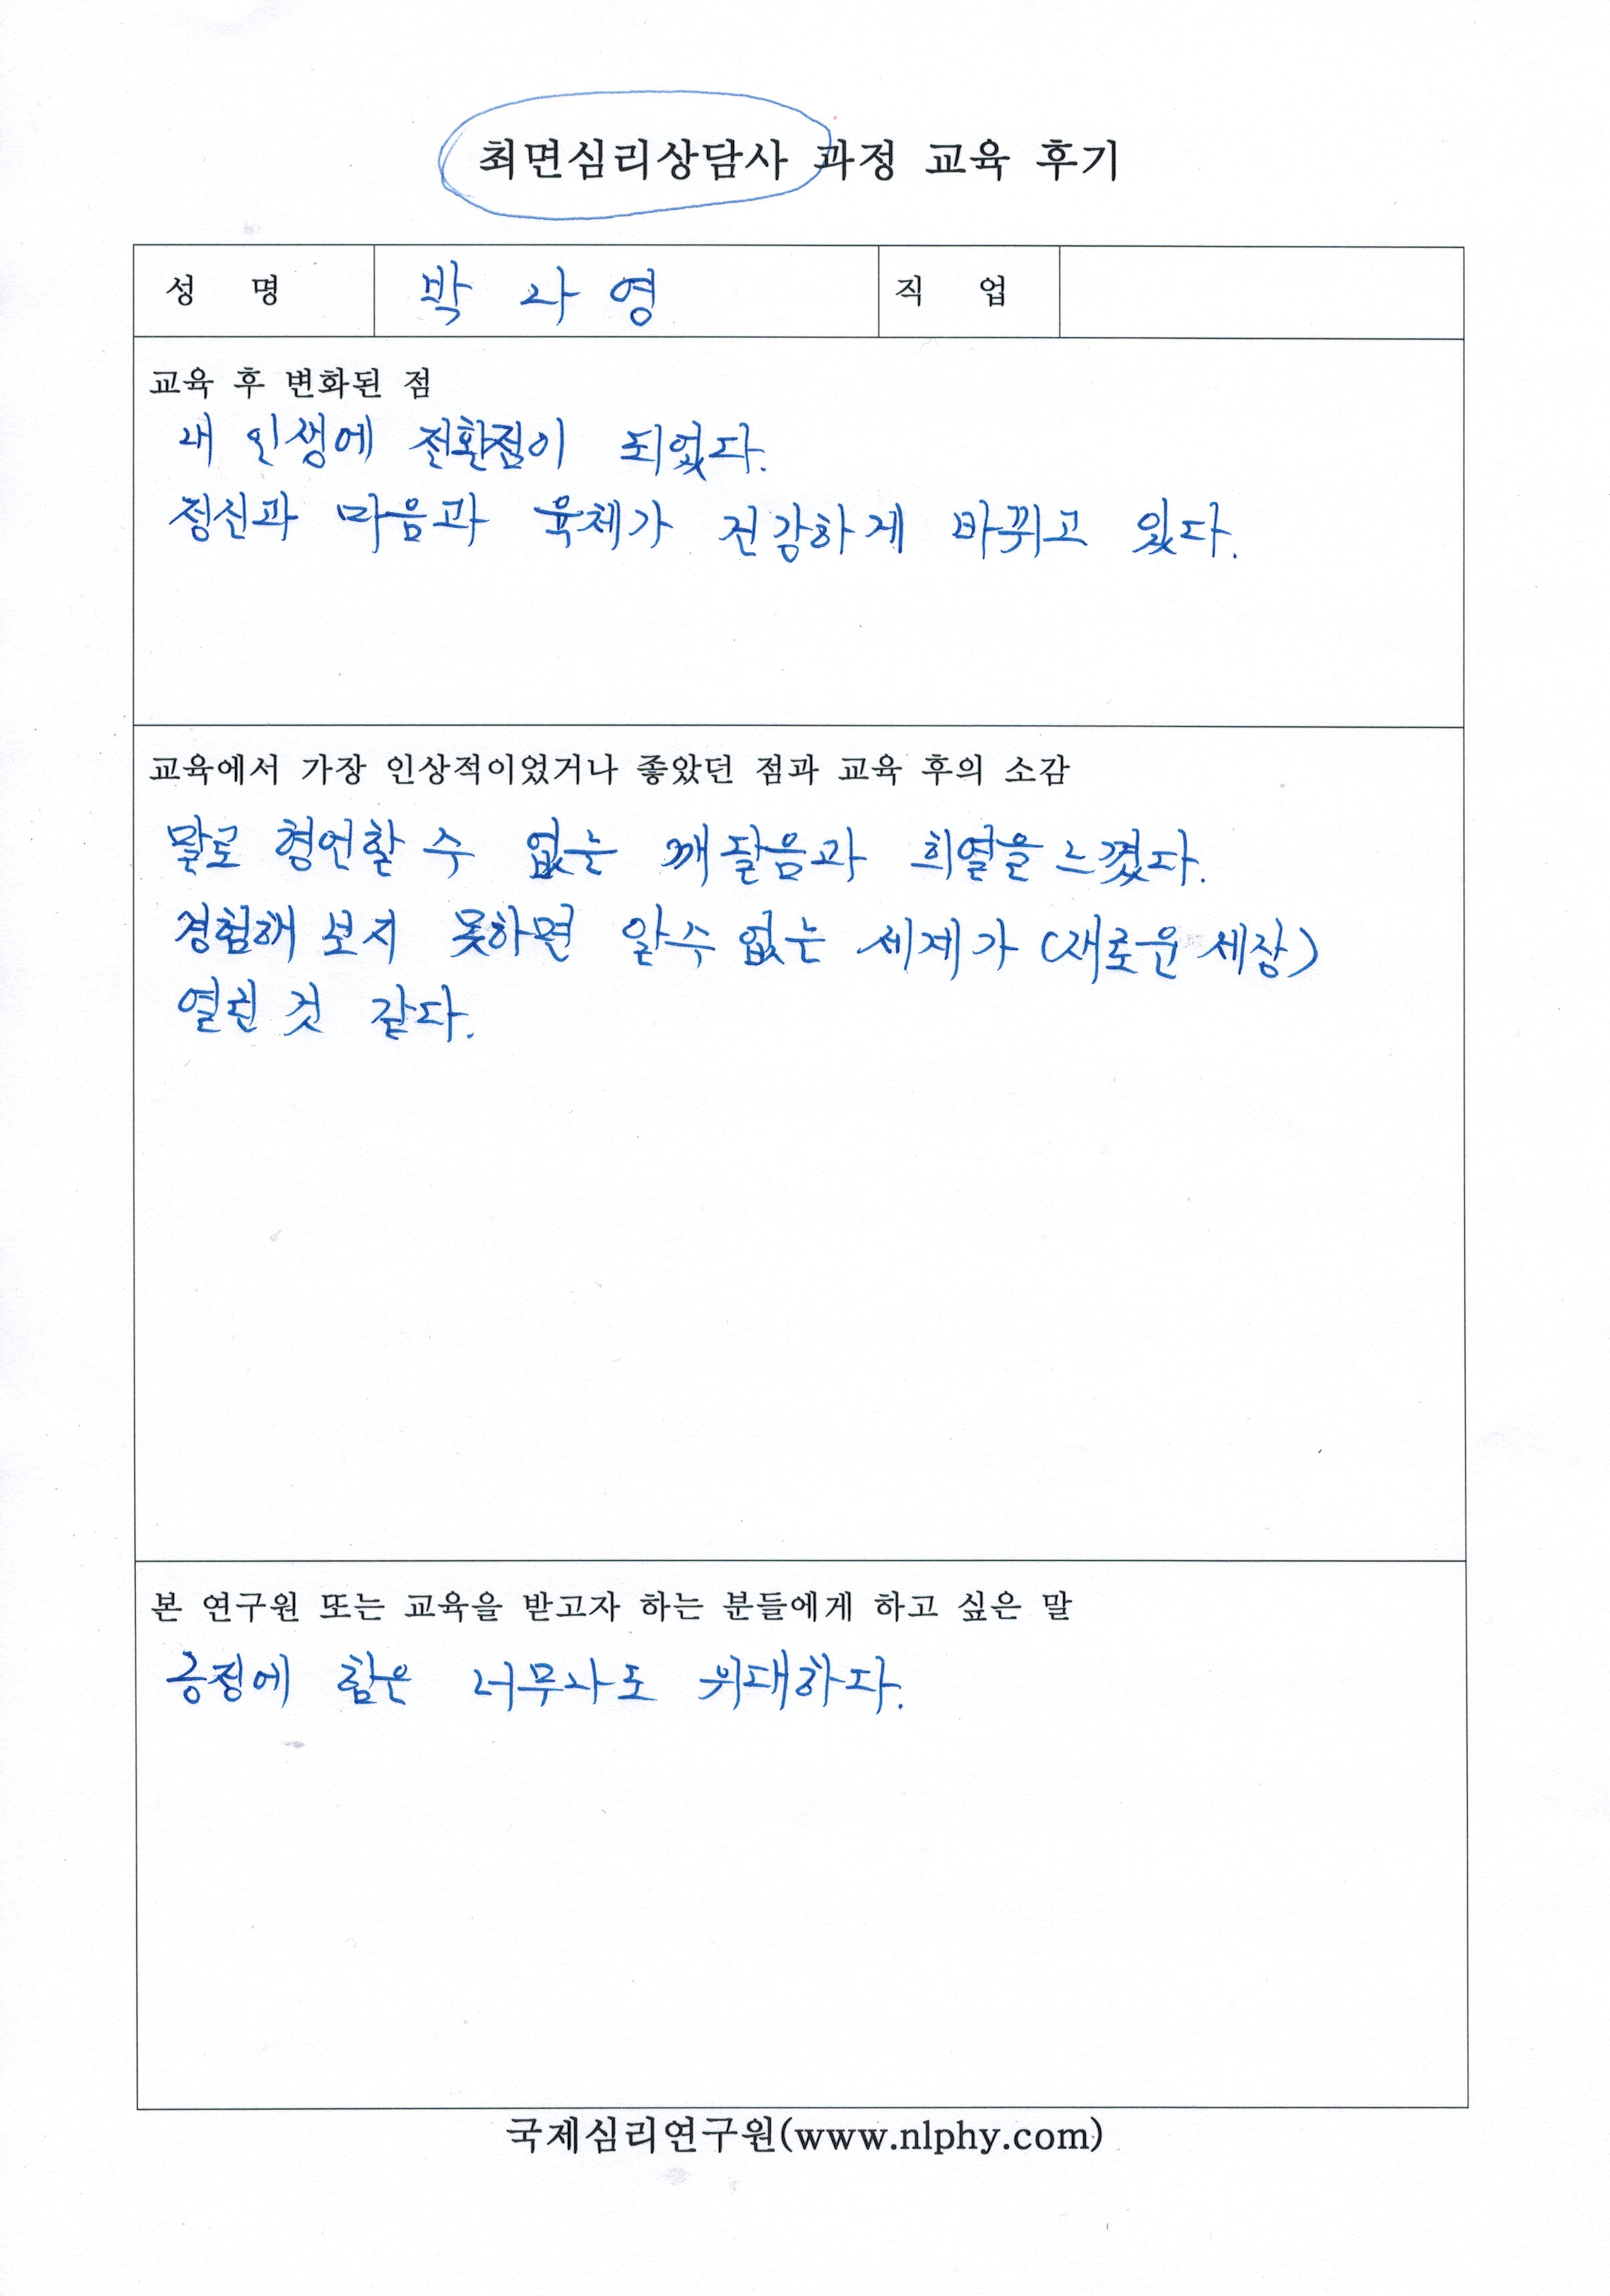 최면심리상담사 과정 교육 후기
성 명 박 나 영 직 업
교육 후 변화된 점
내 인생에 전환점이 되었다.
정신과 마음과 육체가 건강하게 바뀌고 있다.
교육에서 가장 인상적이었거나 좋았던 점과 교육 후의 소감
말로 형언할 수 없는 깨달음과 희열을 느꼈다.
경험해 보지 못하면 알수 없는 세계가 (새로운 세상)
열린 것 같다.
본 연구원 또는 교육을 받고자 하는 분들에게 하고 싶은 말
긍정에 힘은 너무나도 위대하다.
국제심리연구원(www.nlphy.com)